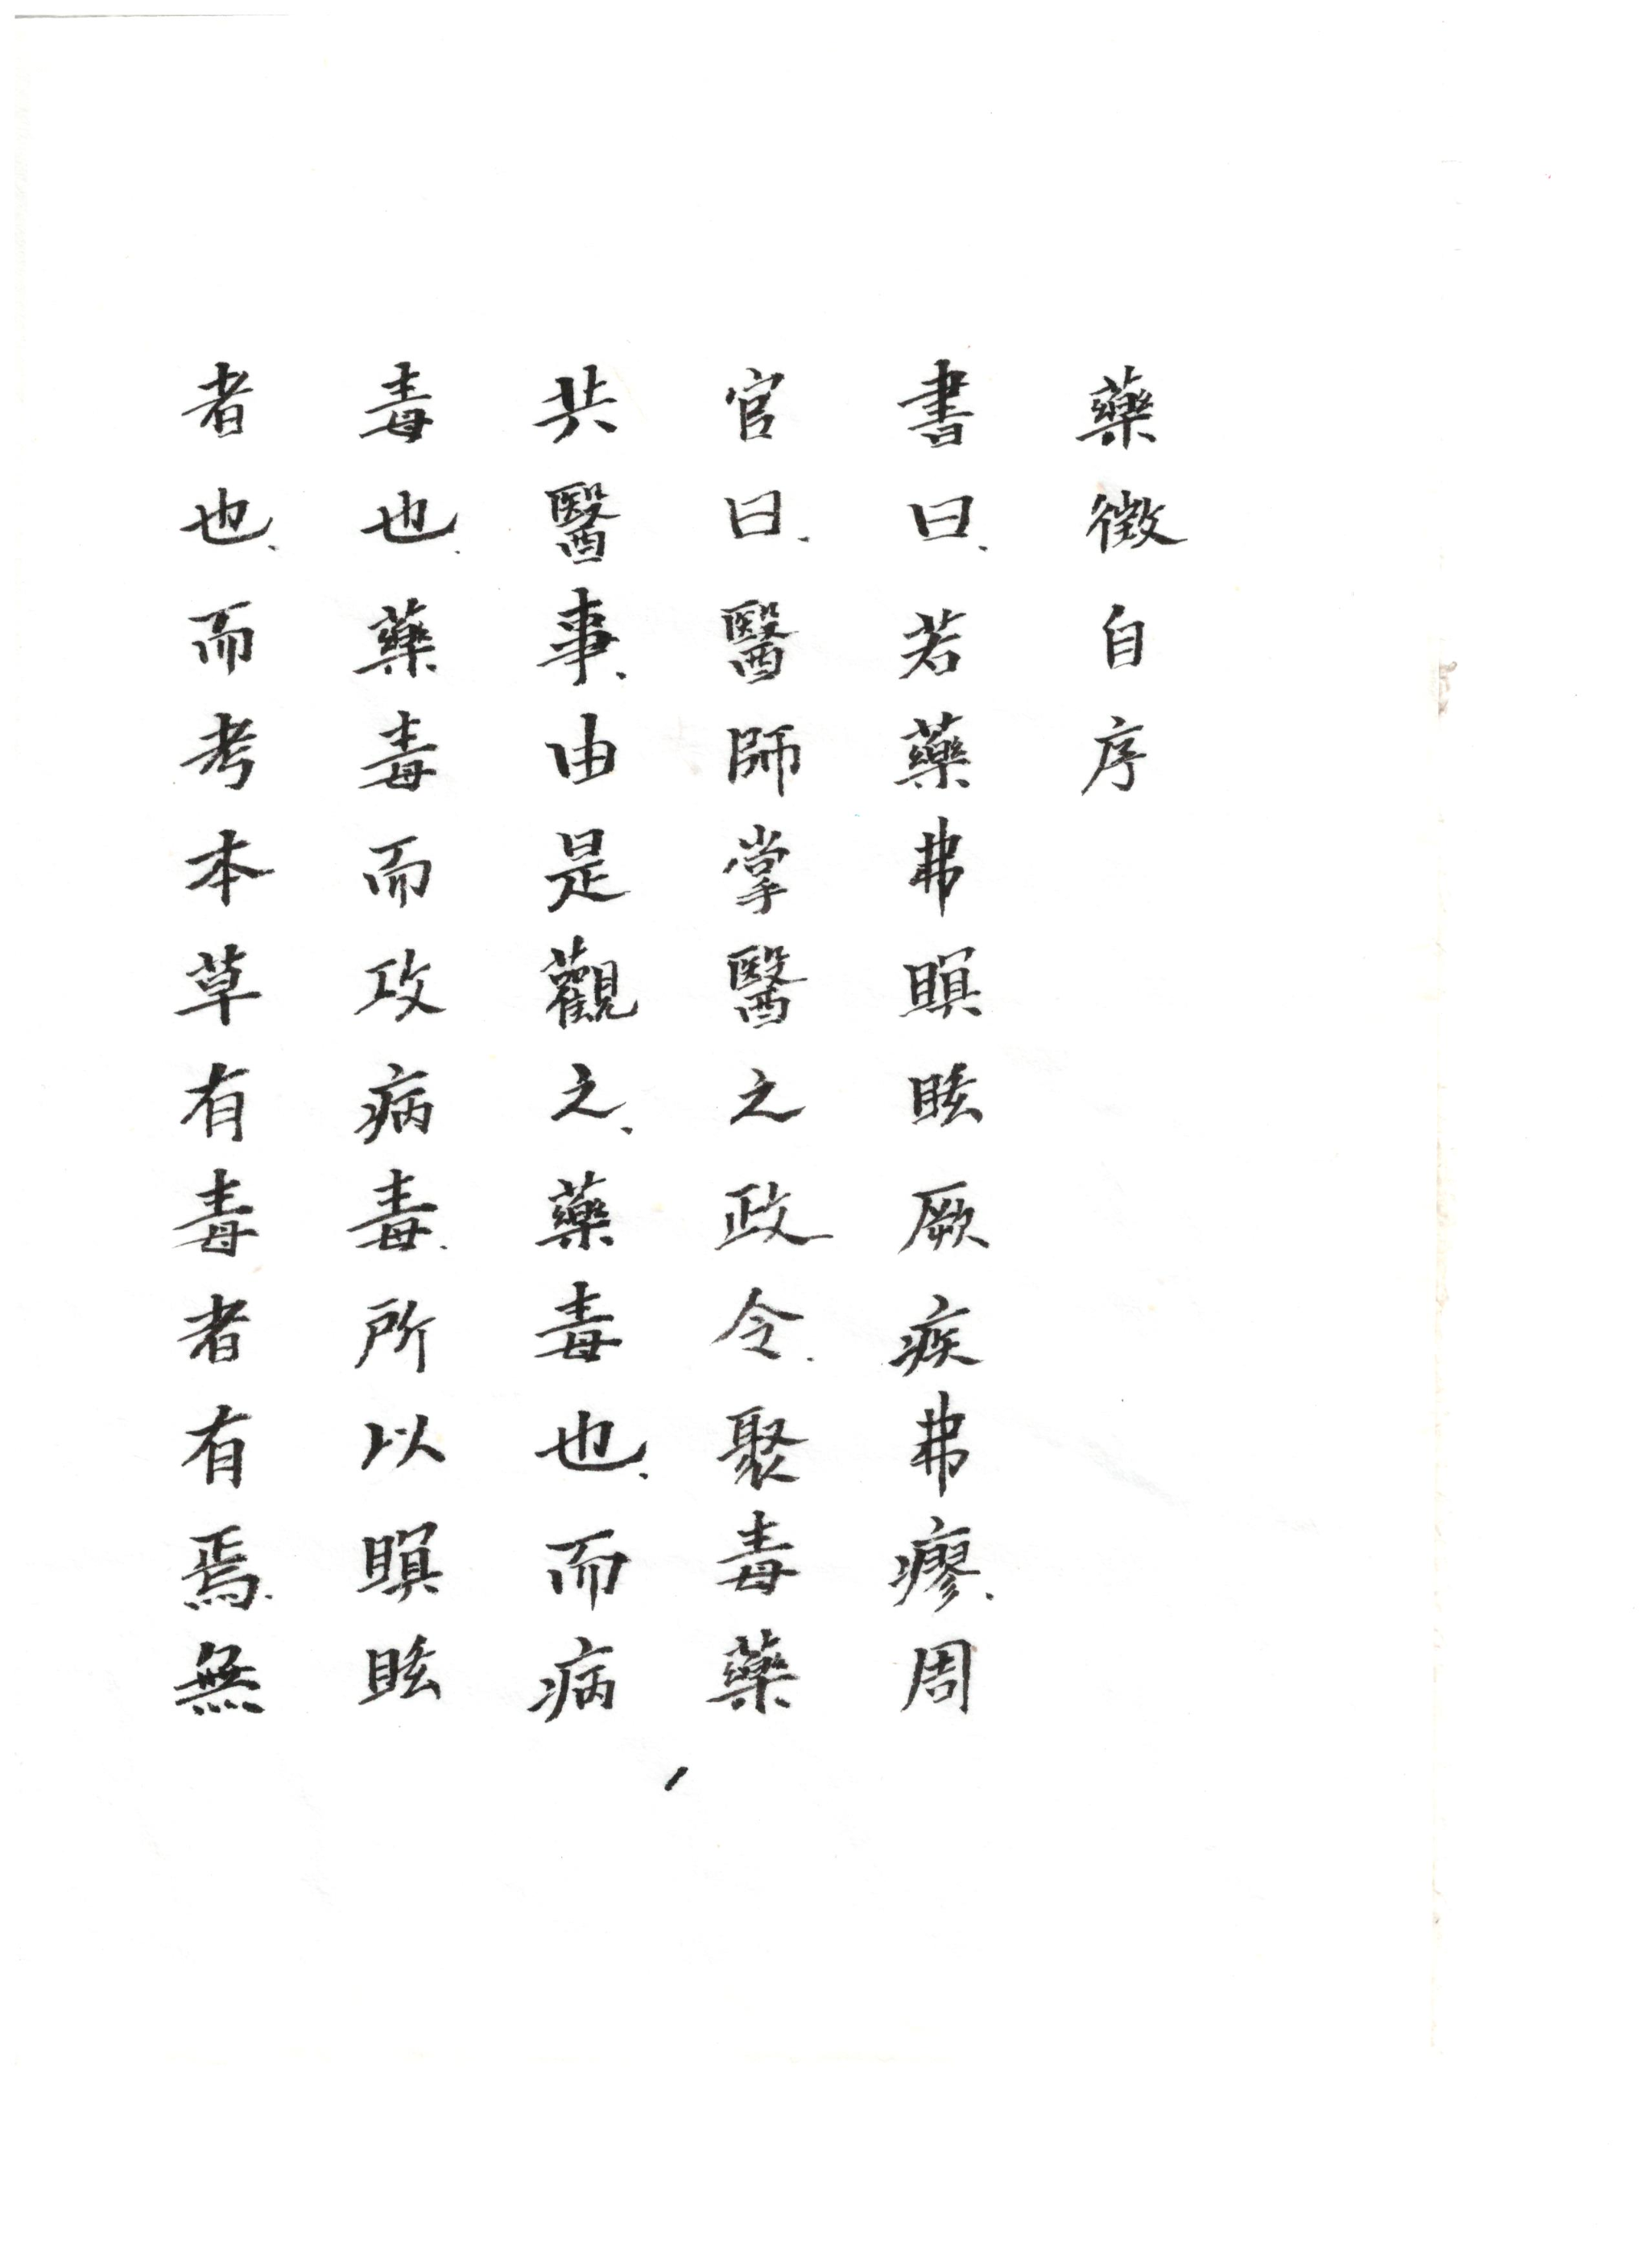 藥徴自序
書曰、若藥弗瞑眩厥疾弗瘳、周
官曰、醫師掌醫之政令、聚毒藥
共醫事、由是觀之、藥毒也、而病
毒也、藥毒而攻病毒、所以瞑眩
者也、而考本草有毒者有焉、無